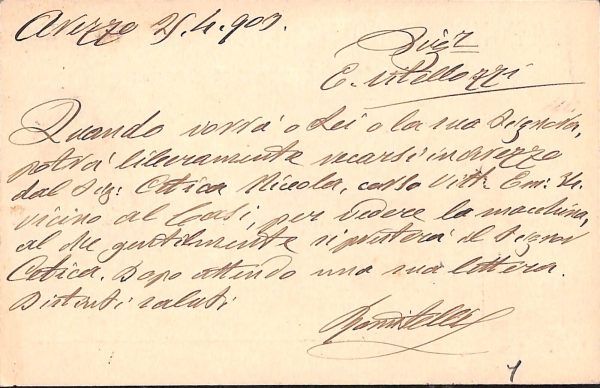 Arezzo 25.4.903.
Sigr
E. Vitellozzi
Quando vorrà o Lei o la sua Signora,
potrà liberamente recarsi in Arezzo
dal Sig: Cotica Nicola, corso Vitt: Em: 34
vicino al Casi, per vedere la macchina,
al che gentilmente si presterà il Signor
Cotica. Dopo attendo una sua lettera.
Distinti saluti
1